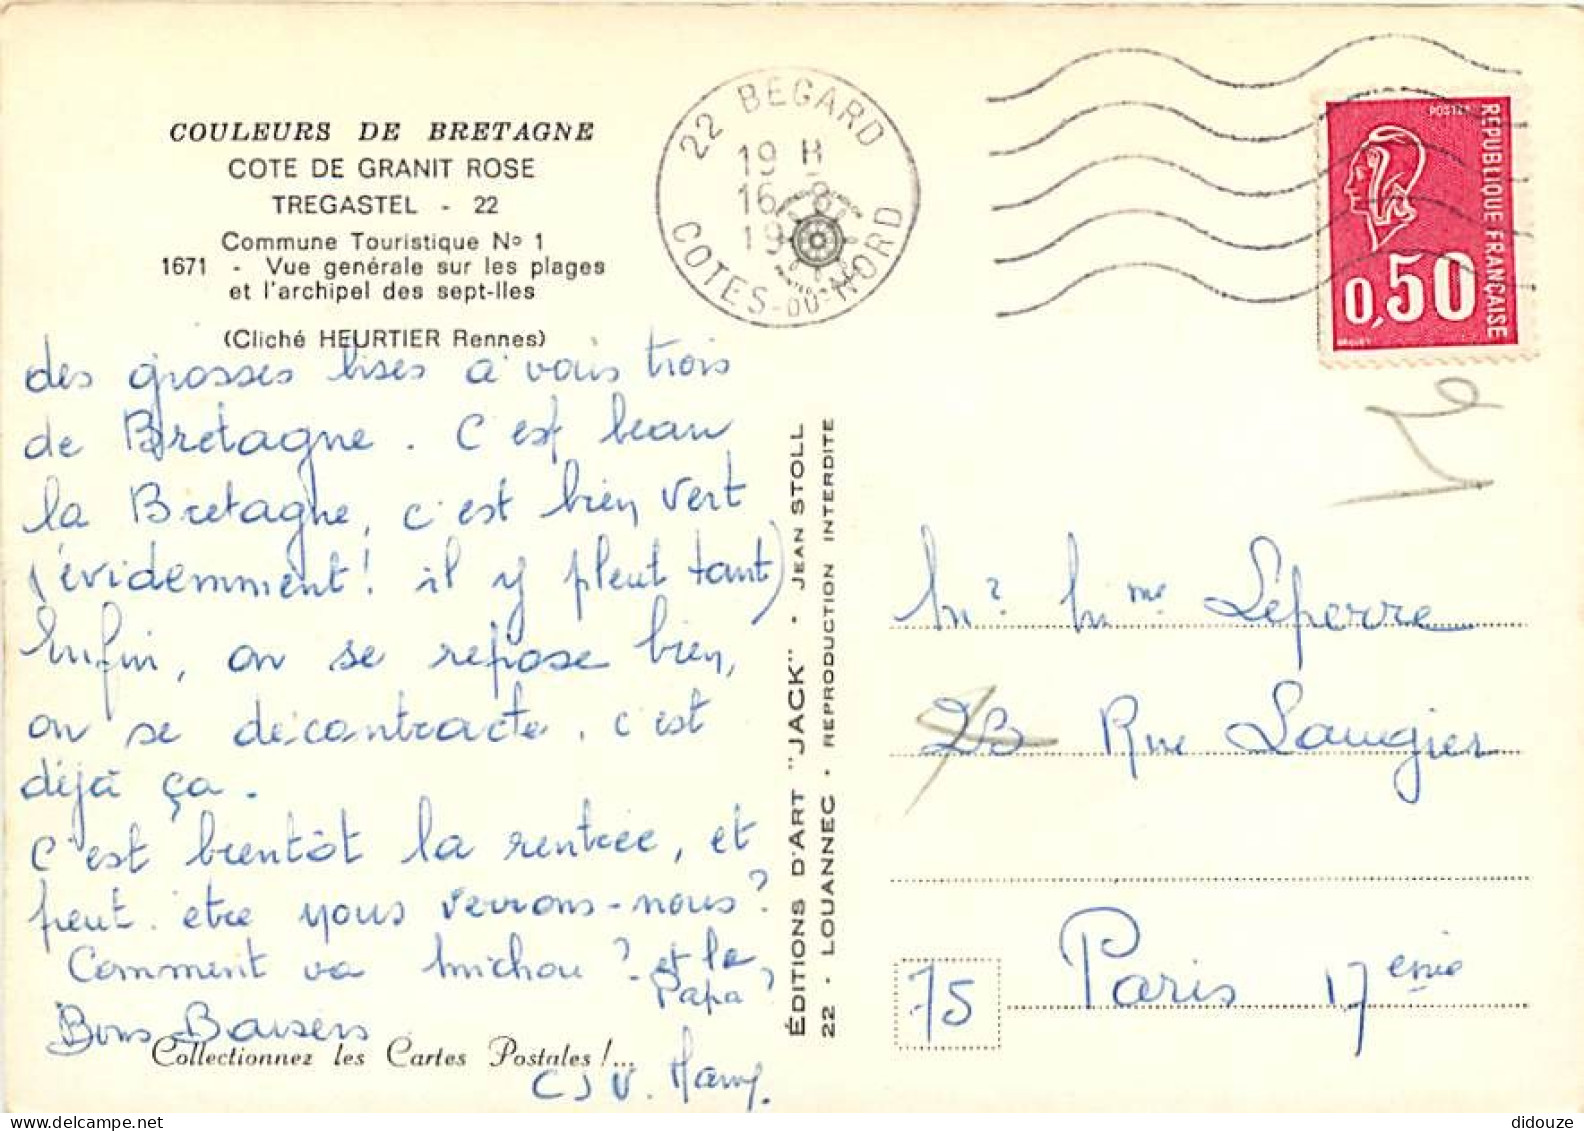 COULEURS DE BRETAGNE
COTE DE GRANIT ROSE
TREGASTEL - 22
Commune Touristique Nº 1
1671 - Vue genérale sur les plages
et l'archipel des sept-Iles
(Cliché HEURTIER Rennes)
des grosses bises à vous trois
de Bretagne. C'est beau
la Bretagne, c'est bien vert
(évidemment! il y pleut tant)
Enfin, on se repose bien,
on se décontracte. c'est
déjà ça.
C'est bientôt la rentrée, et
peut-être vous verrons-nous?
Comment va Michou? et le
Papa?
Bons Baisers
Collectionnez les Cartes Postales!...
C J V.
ÉDITIONS D'ART "JACK" • JEAN STOLL
22 - LOUANNEC • REPRODUCTION INTERDITE
22 BEGARD
19 H
16 8
19
COTES-DU-NORD
POSTES
REPUBLIQUE FRANÇAISE
0,50
Mr Mme Leperre
23 Rue Laugier
75 Paris 17ème
didouze